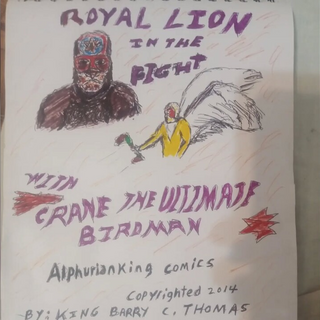 ROYAL LION
IN THE
FIGHT
WITH
CRANE THE ULTIMATE
BIRDMAN
Alphurlanking comics
Copyrighted 2014
BY: KING BARRY C. THOMAS